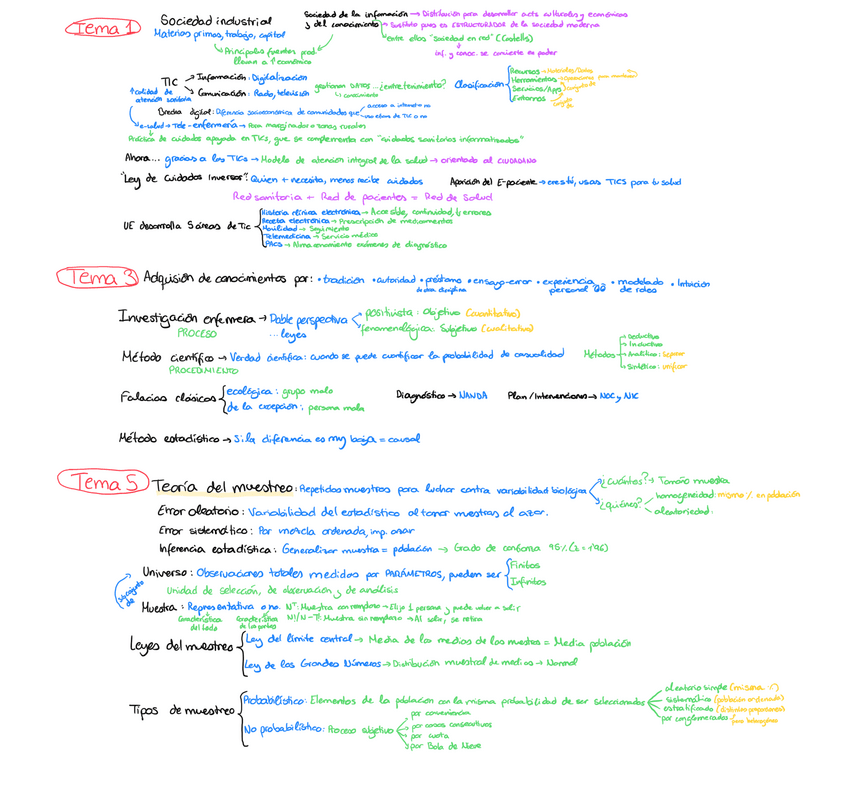 Tema 1
Sociedad industrial
Materias primas, trabajo, capital
Principales fuentes prod.
llevan a ↑ económico
Sociedad de la información → Distribución para desarrollar acts culturales y económicas
y del conocimiento → Instituto pues es ESTRUCTURADOR de la sociedad moderna
entre ellos "sociedad en red" (Castells)
inf. y conoc. se convierte en poder
TIC
Información: Digitalización
Comunicación: Radio, televisión
↑ calidad de
atención sanitaria
gestionan DATOS ... ¿entretenimiento?
↳ conocimiento
Clasificación
Recursos → Materiales/Datos
Herramientas →
Servicios/Apps
Entornos →
Brecha digital: Diferencia socioeconómica de comunidades que
acceso a internet o no
uso efcaz de TIC o no
e-salud → Tele-enfermería → Para marginados o zonas rurales
Práctica de cuidados apoyada en TICs, que se complementa con "cuidados sanitarios informatizados"
Ahora... gracias a las TICS → Modelo de atención integral de la salud → orientado al CIUDADANO
"Ley de Cuidados Inversos": Quien + necesita, menos recibe cuidados
Aparición del E-paciente → eres tú, usas TICS para tu salud
Red sanitaria + Red de pacientes = Red de Salud
UE desarrolla 5 áreas de Tic
Historia clínica electrónica → Accesible, continuidad, ↓ errores
Receta electrónica → Prescripción de medicamentos
Movilidad → Seguimiento
Telemedicina → Servicio médico
PACS → Almacenamiento exámenes de diagnóstico
Tema 3
Adquisión de conocimientos por: • tradición • autoridad • préstamo • ensayo-error • experiencia • modelado • Intuición
de otra disciplina
personal
de roles
Investigación enfermera → Doble perspectiva
PROCESO
... leyes
positivista: Objetivo (cuantitativo)
fenomenológica: Subjetivo (cualitativo)
Método científico → Verdad científica: cuando se puede cuantificar la probabilidad de casualidad
PROCEDIMIENTO
Métodos
Deductivo
Inductivo
Analítico: separar
Sintético: unificar
Falacias clásicas
ecológica: grupo malo
de la excepción: persona mala
Diagnóstico → NANDA
Plan/Intervenciones → NOC y NIC
Método estadístico → Si la diferencia es muy baja = causal
Tema 5
Teoría del muestreo: Repetidas muestras para luchar contra variabilidad biológica
¿cuántos? → Tamaño muestra
¿quiénes?
homogeneidad: mismo % en población
aleatoriedad:
Error aleatorio: Variabilidad del estadístico al tomar muestras al azar.
Error sistemático: Por mezcla ordenada, imp. azar
Inferencia estadística: Generalizar muestra = población → Grado de confianza 95% (z = 1'96)
Universo: Observaciones totales medidas por PARÁMETROS, pueden ser
Finitos
Infinitos
Unidad de selección, de observación y de análisis
Subconjunto
de
Muestra: Representativa o no.
Característica
del todo
Característica
de las partes
Nᵀ: Muestra con remplazo → Elijo 1 persona y puede volver a salir
N!/N-T: Muestra sin remplazo → Al salir, se retira
Leyes del muestreo
Ley del límite central → Media de las medias de las muestras = Media población
Ley de los Grandes Números → Distribución muestral de medias → Normal
Tipos de muestreo
Probabilístico: Elementos de la población con la misma probabilidad de ser seleccionados
aleatorio simple (misma %)
sistemático (población ordenada)
estratificado (distintas proporciones)
por conglomerados
No probabilístico: Proceso subjetivo
por conveniencia
por casos consecutivos
por cuota
por Bola de Nieve